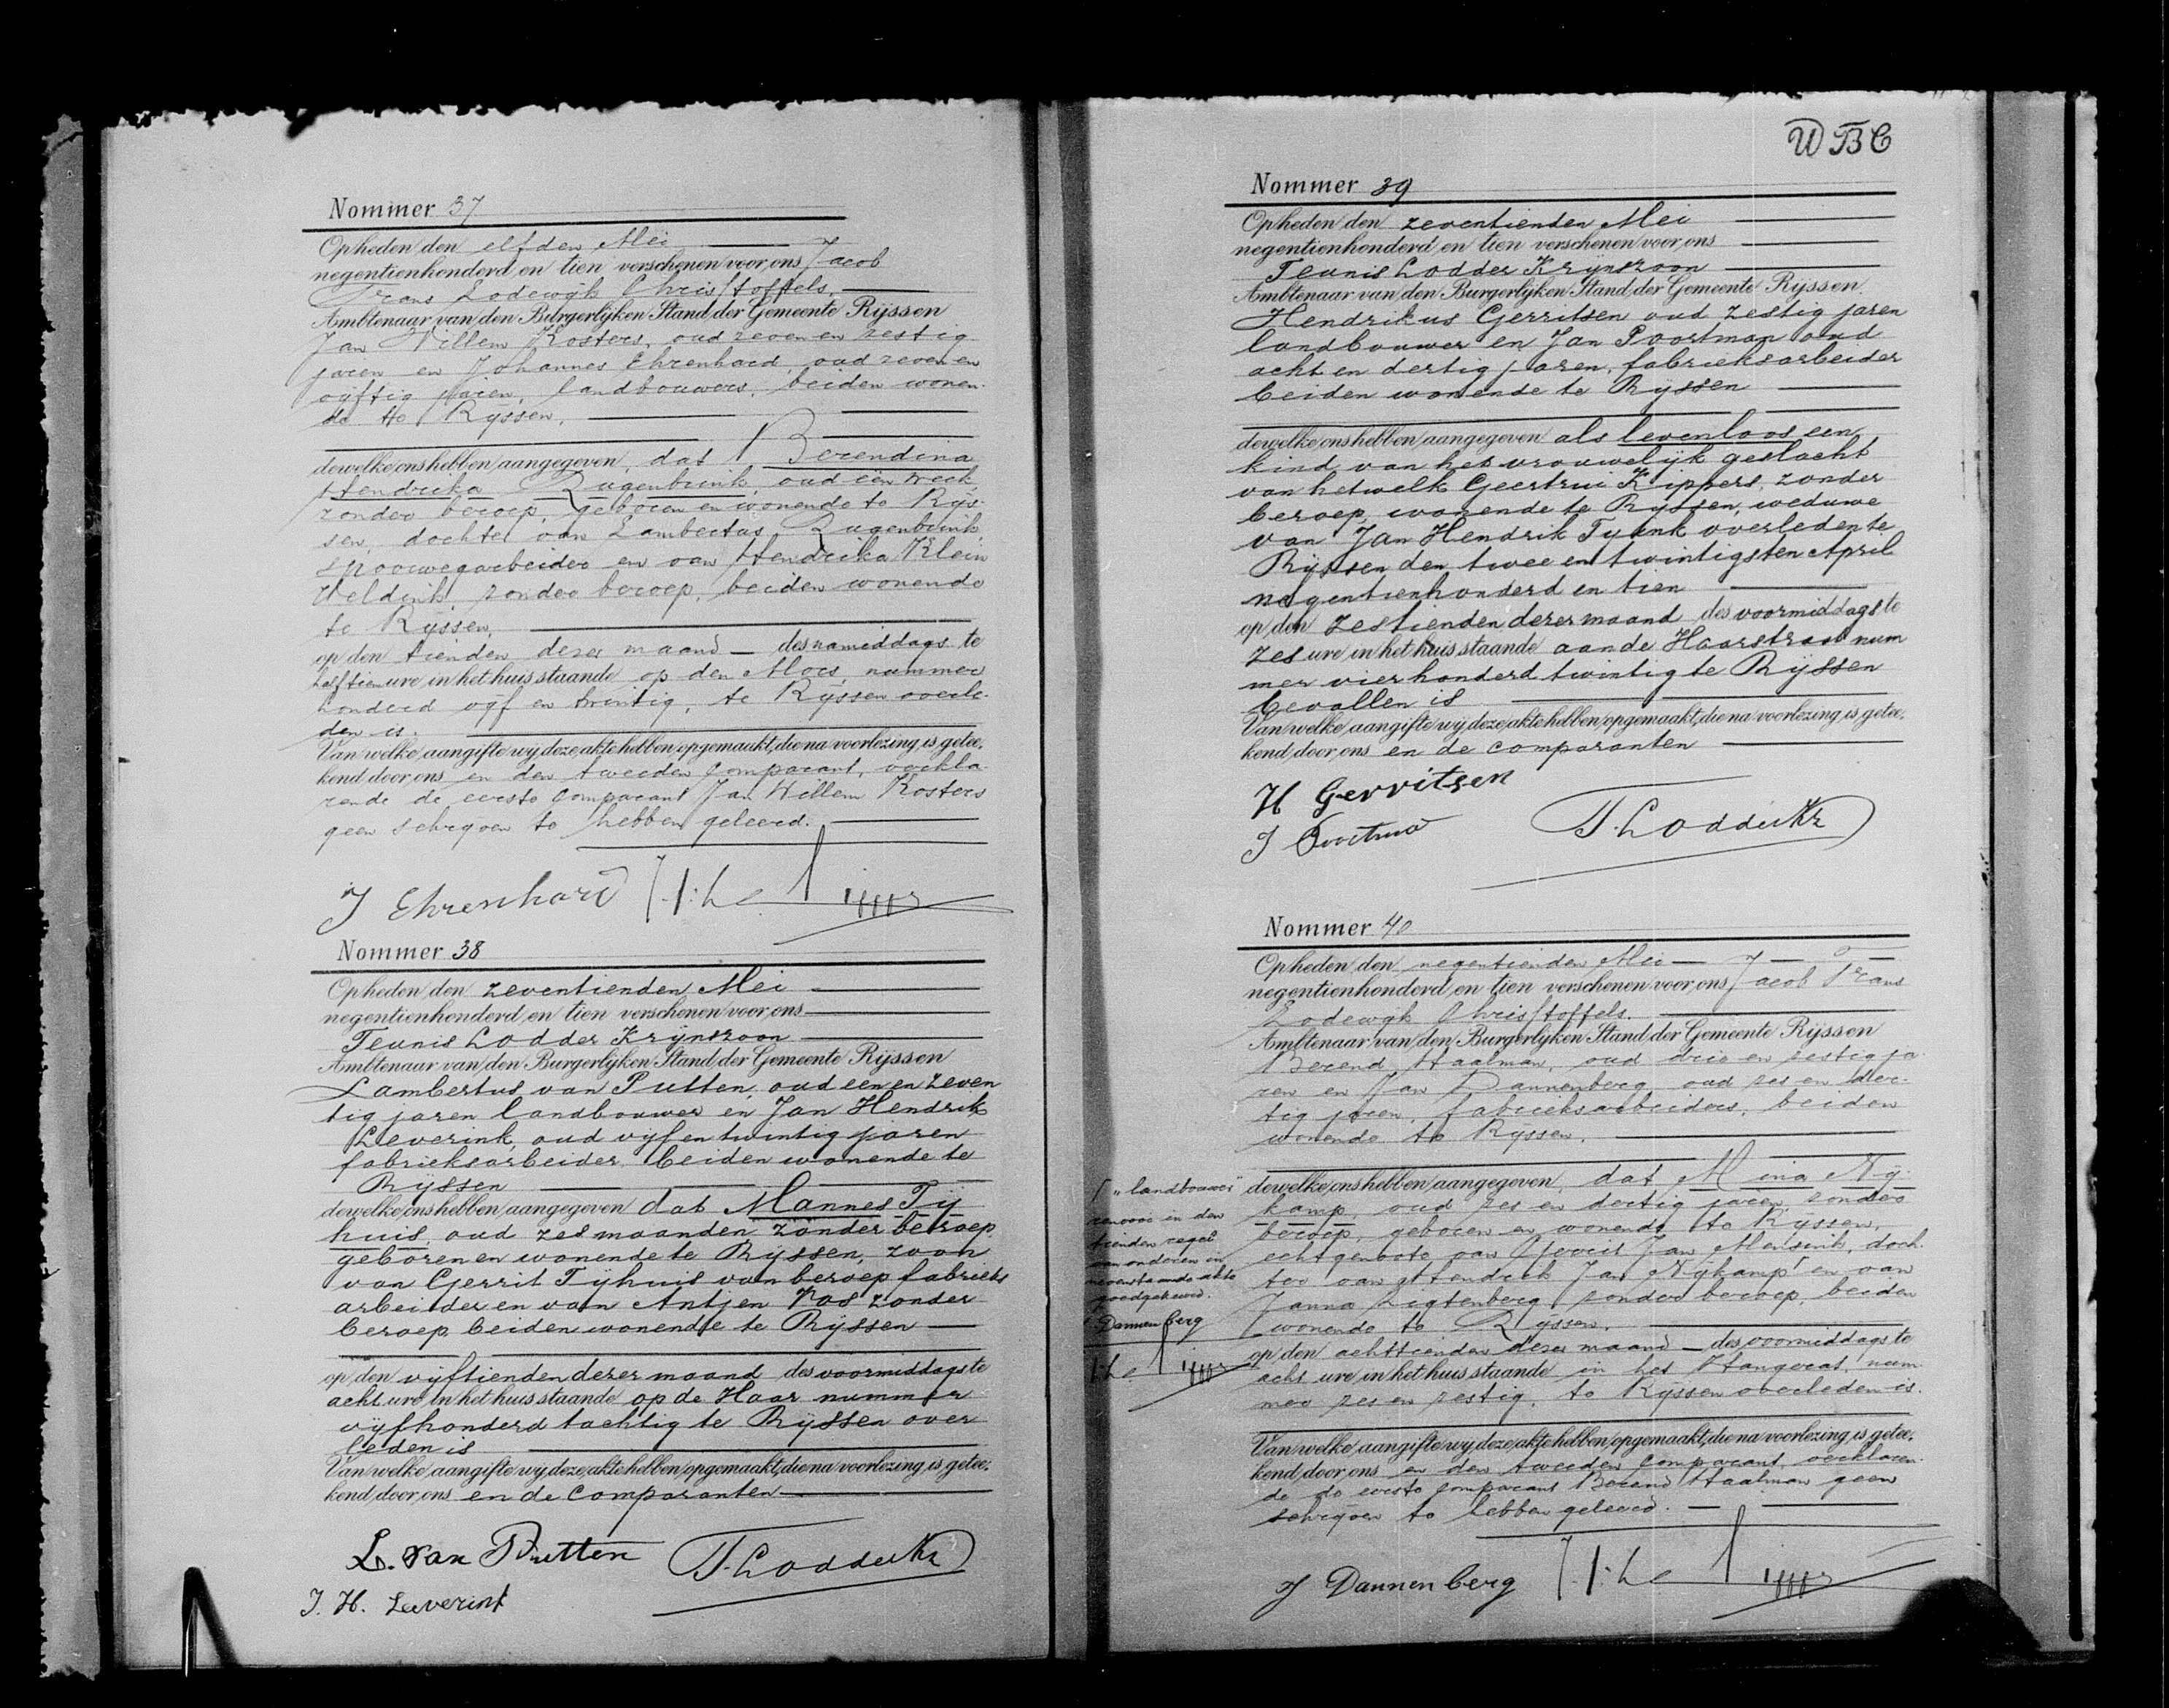 Nommer 37
Op heden den elfden Mei
negentienhonderd en tien verschenen voor ons Jacob
Frans Lodewijk Christoffels,
Ambtenaar van den Burgerlijken Stand der Gemeente Rijssen
Jan Willem Kosters, oud zeven en zestig
jaren en Johannes Ehrenhard, oud zeven en
vijftig jaren, landbouwers, beiden wonen-
de te Rijssen,
dewelke ons hebben aangegeven, dat Berendina
Hendrika Rugenbrink, oud één week,
zonder beroep, geboren en wonende te Rijs-
sen, dochter van Lambertus Rugenbrink,
spoorwegarbeider en van Hendrika Klein
Veldink, zonder beroep, beiden wonende
te Rijssen,
op den tienden dezer maand des namiddags te
half tien ure, in het huis staande op den Moes, nummer
honderd vijf en twintig, te Rijssen overle-
den is.
Van welke aangifte wij deze akte hebben opgemaakt, die na voorlezing is getee-
kend door ons en den tweeden comparant, verkla-
rende de eerste comparant Jan Willem Kosters
geen schrijven te hebben geleerd.
J Ehrenhard
Nommer 38
Op heden den zeventienden Mei
negentienhonderd en tien verschenen voor ons
Teunis Lodder Krijnszoon
Ambtenaar van den Burgerlijken Stand der Gemeente Rijssen
Lambertus van Putten, oud een en zeven
tig jaren landbouwer en Jan Hendrik
Leverink, oud vijf en twintig jaren
fabrieksarbeider beiden wonende te
Rijssen
dewelke ons hebben aangegeven dat Mannes Tij
huis, oud zes maanden, zonder beroep
geboren en wonende te Rijssen, zoon
van Gerrit Tijhuis van beroep fabrieks
arbeider en van Antjen Kos zonder
beroep beiden wonende te Rijssen
op den vijftienden dezer maand des voormiddags te
acht ure in het huis staande op de Haar nummer
vijfhonderd tachtig te Rijssen over
leden is
Van welke aangifte wij deze akte hebben opgemaakt, die na voorlezing is getee-
kend door ons en de comparanten
L. van Putten T. Lodder Kz
J. H. Leverink
WBC
Nommer 39
Op heden den zeventienden Mei
negentienhonderd en tien verschenen voor ons
Teunis Lodder Krijnszoon
Ambtenaar van den Burgerlijken Stand der Gemeente Rijssen
Hendrikus Gerritsen oud zestig jaren
landbouwer en Jan Poortman oud
acht en dertig jaren, fabrieksarbeider
beiden wonende te Rijssen
dewelke ons hebben aangegeven als levenloos een
kind van het vrouwelijk geslacht
van hetwelk Geertrui Kippers, zonder
beroep, wonende te Rijssen, weduwe
van Jan Hendrik Tyink overleden te
Rijssen den twee en twintigsten April
negentienhonderd en tien
op den zestienden dezer maand des voormiddags te
zes ure in het huis staande aan de Haarstraat num
mer vierhonderd twintig te Rijssen
bevallen is
Van welke aangifte wij deze akte hebben opgemaakt, die na voorlezing is getee-
kend door ons en de comparanten
H Gerritsen
J Poortman T. Lodder Kz
Nommer 40
Op heden den negentienden Mei
negentienhonderd en tien verschenen voor ons Jacob Frans
Lodewijk Christoffels.
Ambtenaar van den Burgerlijken Stand der Gemeente Rijssen
Berend Haalman, oud drie en zestig ja
ren en Jan Dannenberg, oud zes en der-
tig jaren, fabrieksarbeiders, beiden
wonende te Rijssen,
dewelke ons hebben aangegeven, dat Mina Nij-
kamp, oud zes en dertig jaren, zonder
beroep, geboren en wonende te Rijssen,
echtgenote van Gerrit Jan Mensink, doch-
ter van Hendrik Jan Nijkamp en van
Janna Ligtenberg, zonder beroep, beiden
wonende te Rijssen,
op den achttienden dezer maand des voormiddags te
acht ure, in het huis staande in het Hangerat, num
mer zes en zestig, te Rijssen overleden is.
Van welke aangifte wij deze akte hebben opgemaakt, die na voorlezing is getee-
kend door ons en den tweeden comparant, verklaren-
de de eerste comparant Berend Haalman geen
schrijven te hebben geleerd.
J Dannenberg
„landbouwer"
in den
tienden regel
van onderen in
nevenstaande akte
goedgekeurd.
Dannenberg